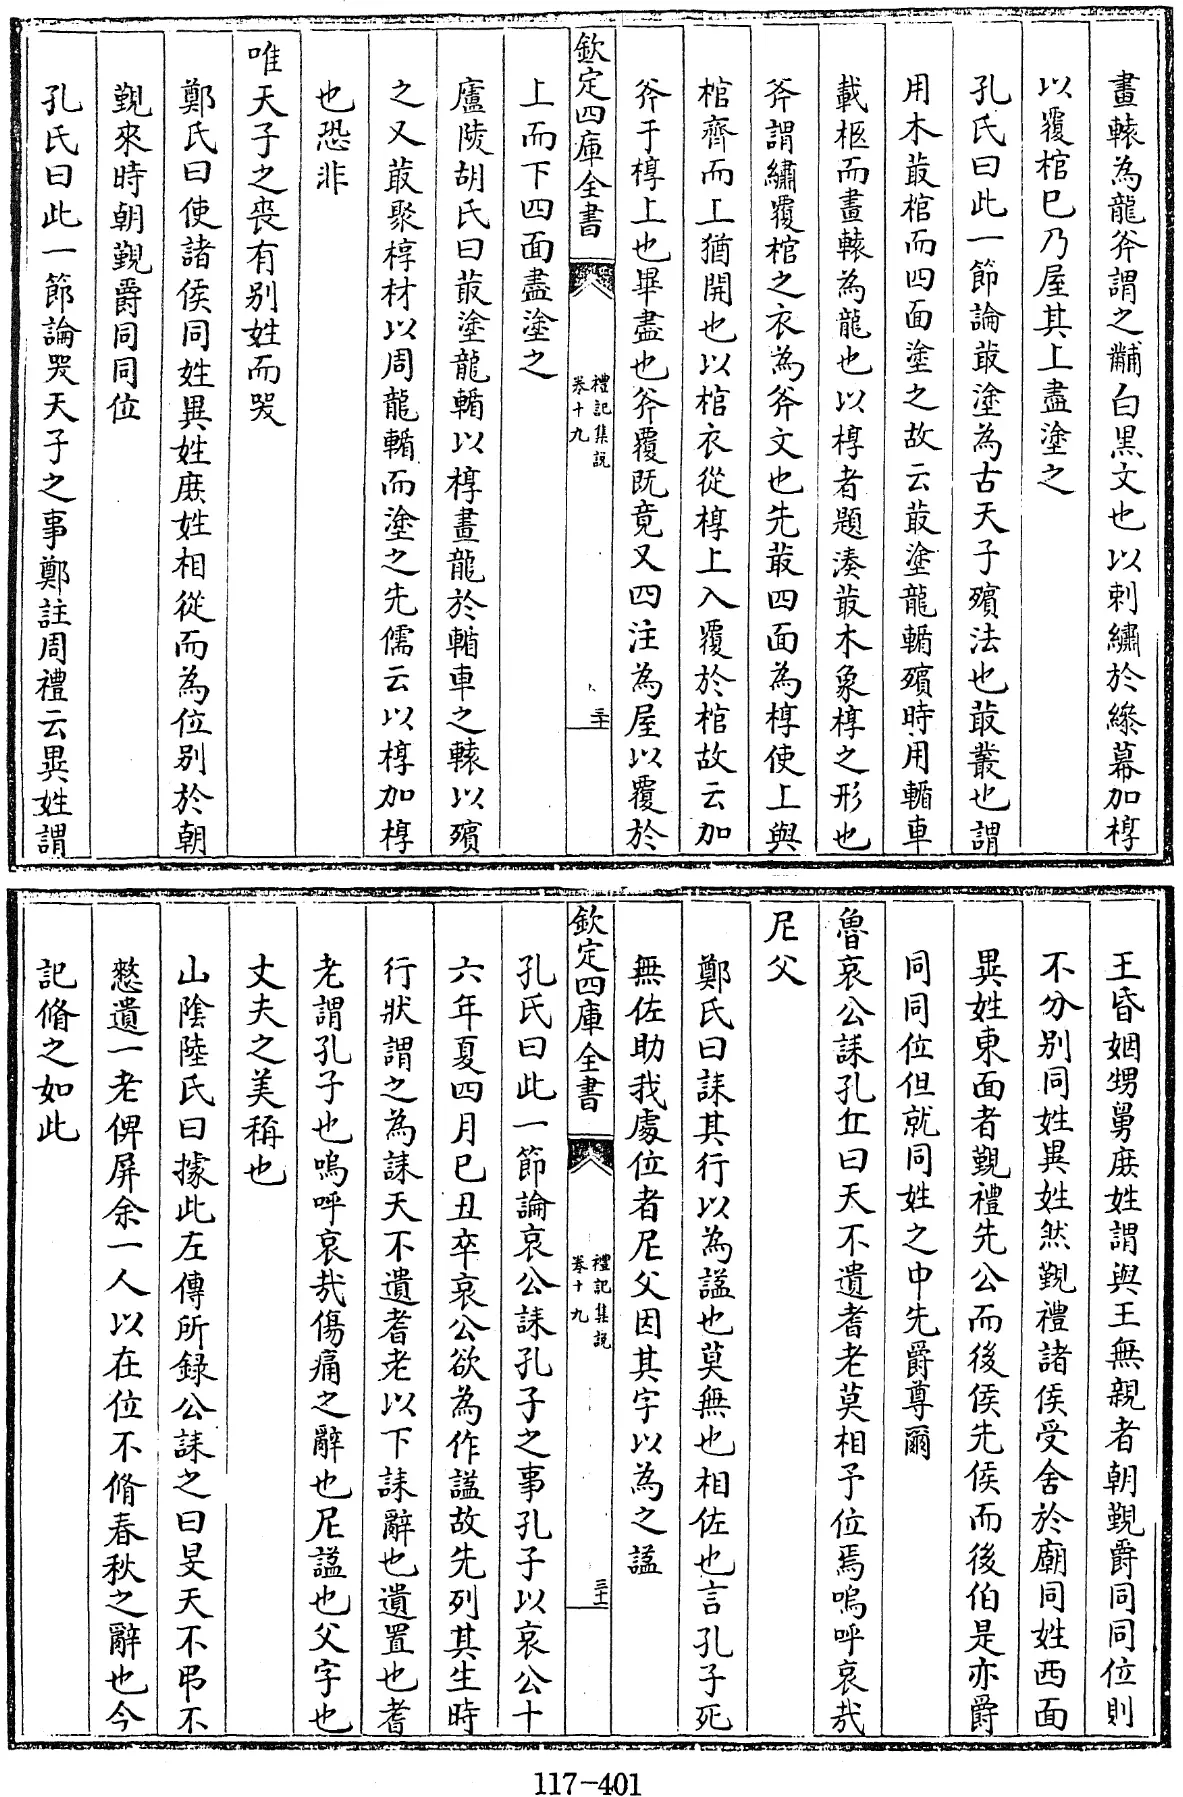 畫轅為龍斧謂之黼白黒文也以刺繡於縿幕加椁
以覆棺已乃屋其上盡塗之
孔氏曰此一節論菆塗為古天子殯法也菆叢也謂
用木菆棺而四面塗之故云菆塗龍輴殯時用輴車
載柩而畫轅為龍也以椁者題湊菆木象椁之形也
斧謂繡覆棺之衣為斧文也先菆四面為椁使上與
棺齊而上猶開也以棺衣從椁上入覆於棺故云加
斧于椁上也畢盡也斧覆既竟又四注為屋以覆於
欽定四庫全書
禮記集説
卷十九
三十
上而下四面盡塗之
廬陵胡氏曰菆塗龍輴以椁畫龍於輴車之轅以殯
之又菆聚椁材以周龍輴而塗之先儒云以椁加椁
也恐非
唯天子之喪有别姓而哭
鄭氏曰使諸侯同姓異姓庶姓相從而為位别於朝
覲來時朝覲爵同同位
孔氏曰此一節論哭天子之事鄭註周禮云異姓謂
王昏姻甥舅庶姓謂與王無親者朝覲爵同同位則
不分别同姓異姓然覲禮諸侯受舍於廟同姓西面
異姓東面者覲禮先公而後侯先侯而後伯是亦爵
同同位但就同姓之中先爵尊爾
魯哀公誄孔丘曰天不遺耆老莫相予位焉嗚呼哀哉
尼父
鄭氏曰誄其行以為諡也莫無也相佐也言孔子死
無佐助我處位者尼父因其字以為之諡
欽定四庫全書
禮記集説
卷十九
三十一
孔氏曰此一節論哀公誄孔子之事孔子以哀公十
六年夏四月已丑卒哀公欲為作諡故先列其生時
行狀謂之為誄天不遺耆老以下誄辭也遺置也耆
老謂孔子也嗚呼哀哉傷痛之辭也尼諡也父字也
丈夫之美稱也
山陰陸氏曰據此左傳所録公誄之曰旻天不弔不
憖遺一老俾屏余一人以在位不脩春秋之辭也今
記脩之如此
117-401